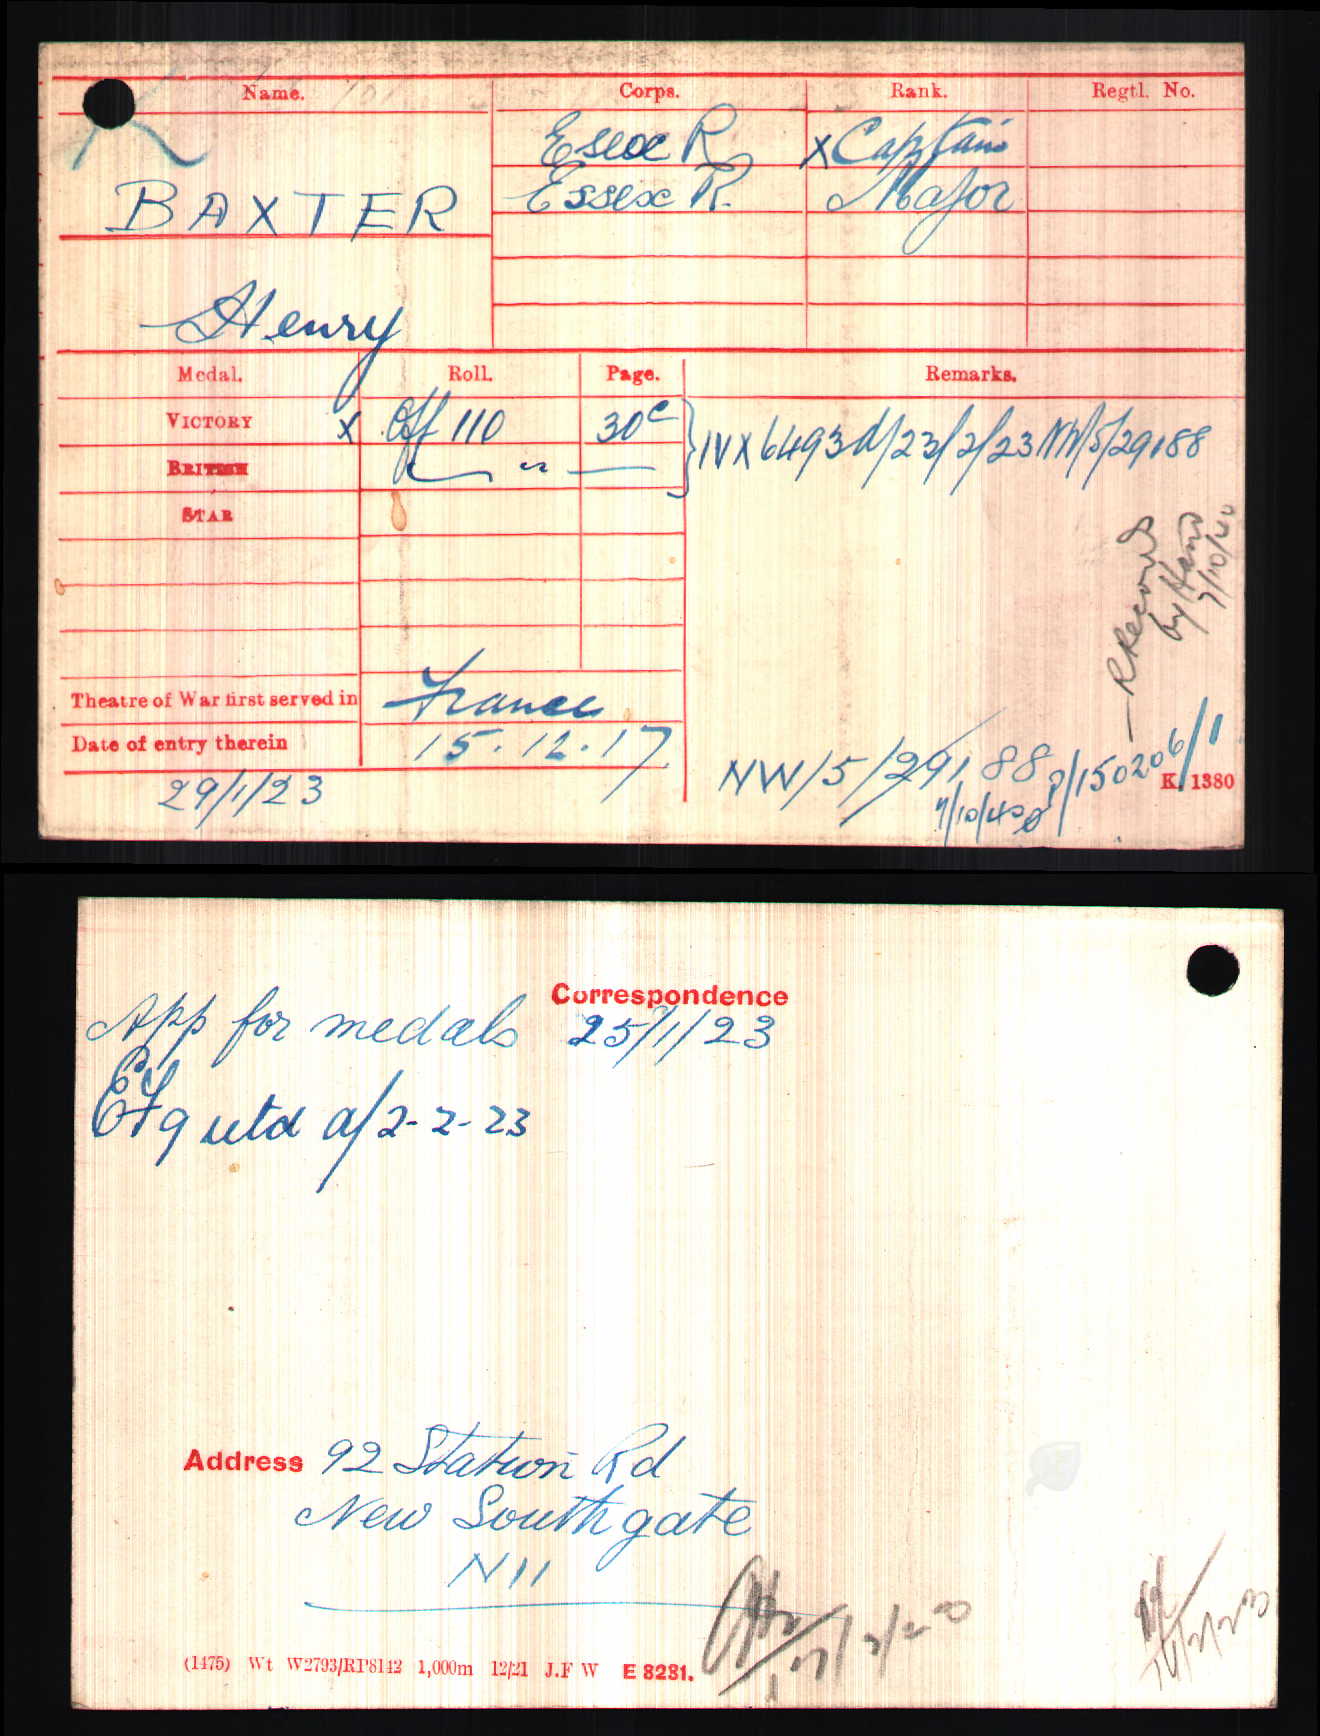 Name. Corps. Rank. Regtl. No.
Essex R x Captain
Essex R. Major
BAXTER
Henry
Medal. Roll. Page. Remarks.
VICTORY x Off 110 30c IV X 6493 d/23/2/23 NW/5/29188
BRITISH " 
STAR
R Records
by Hand
7/10/40
Theatre of War first served in France
Date of entry therein 15.12.17
29/1/23
NW/5/29188 P/150206/1
7/10/40
K. 1380
Correspondence
App for medals 25/1/23
utd d/2-2-23
Address 92 Station Rd
New Southgate
N11
(1475) Wt W2793/RP8142 1,000m 12/21 J.F W E 8281.